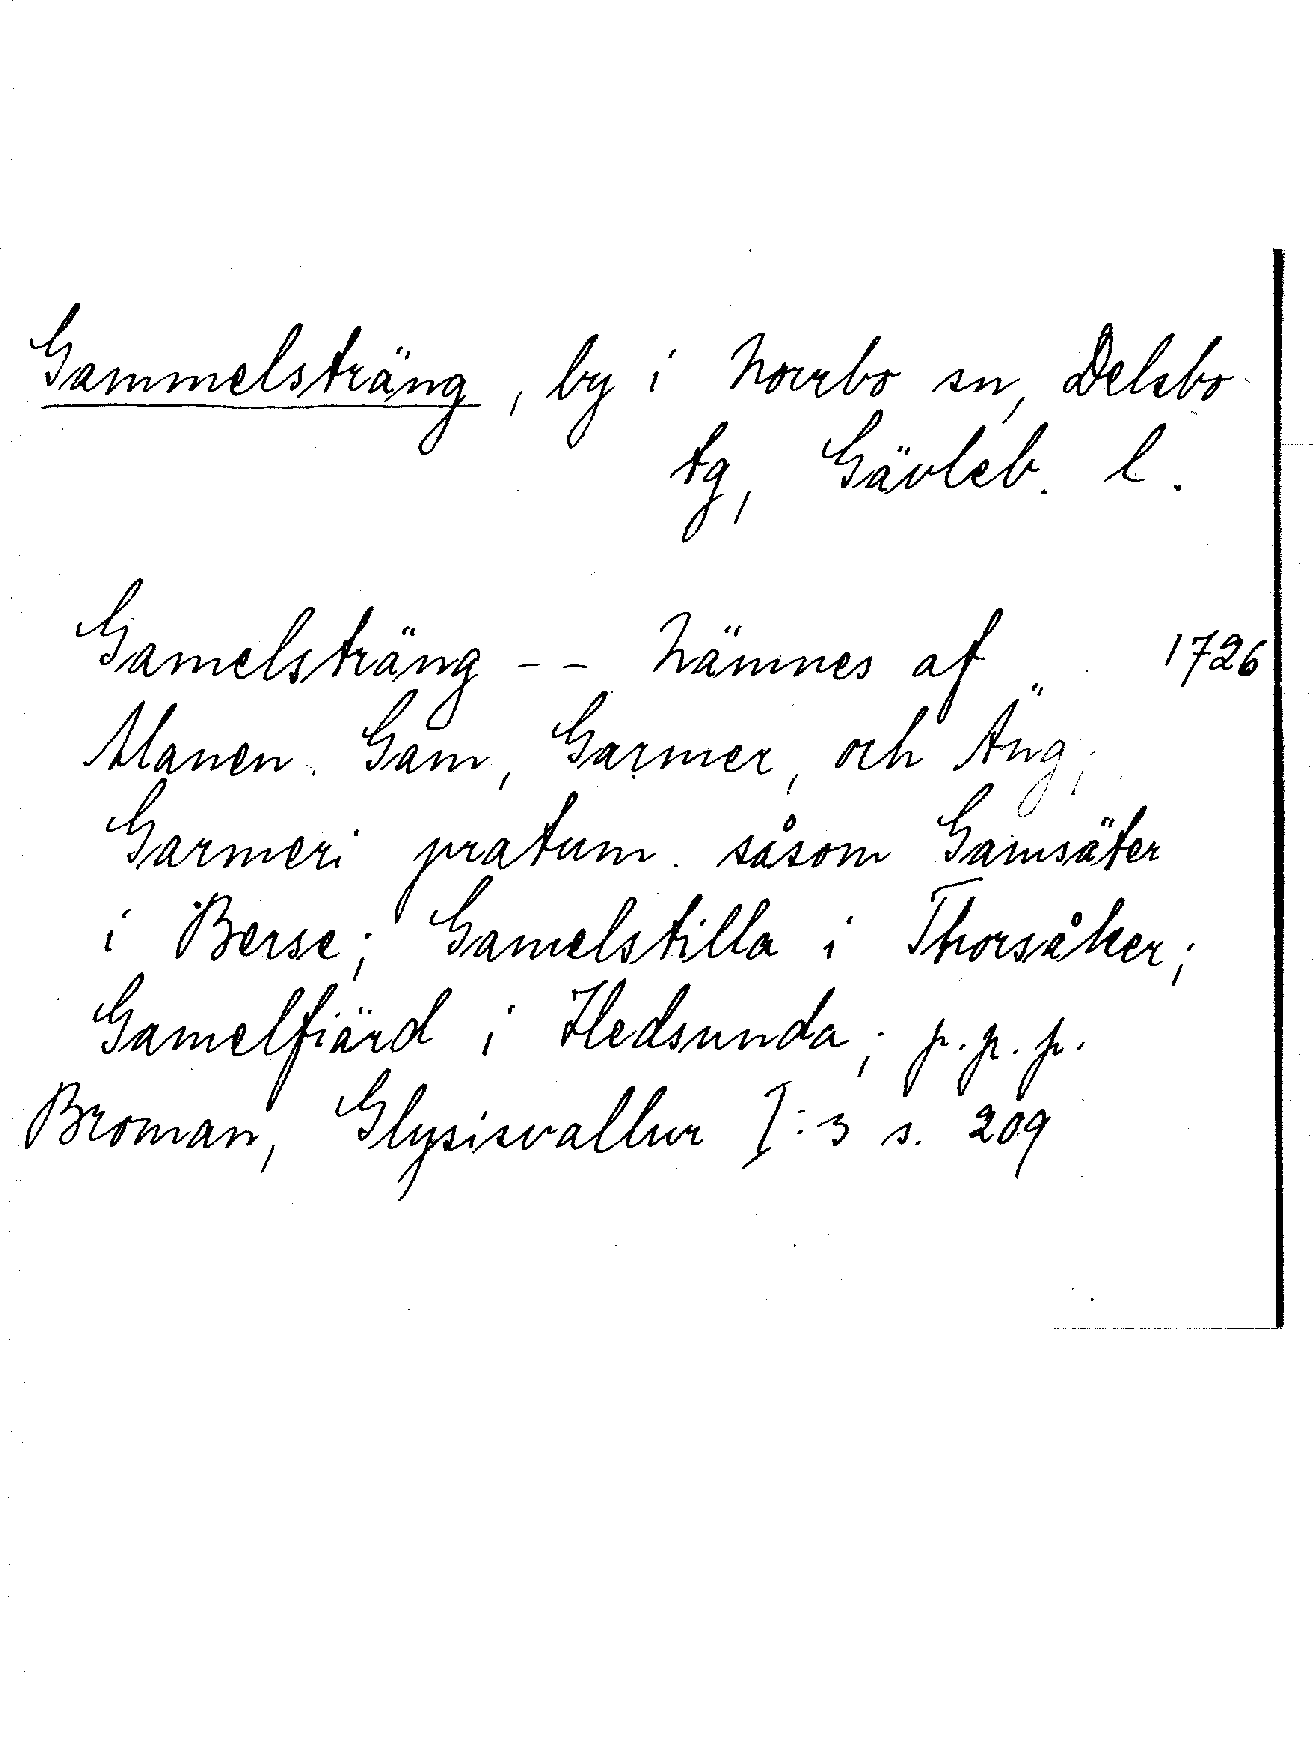 Gammelsträng, by i Norrbo sn, Delsbo
tg, Gävleb. l.
Gamelsträng -- Nämnes af 1726
Manen. Gam, Garmer, och Äng;
Garmeri pratum. såsom Gamsäter
i Berse; Gamelstilla i Thorsåker;
Gamelfiärd i Hedsunda; p.p.p.
Broman, Glysisvallur I:3 s. 209